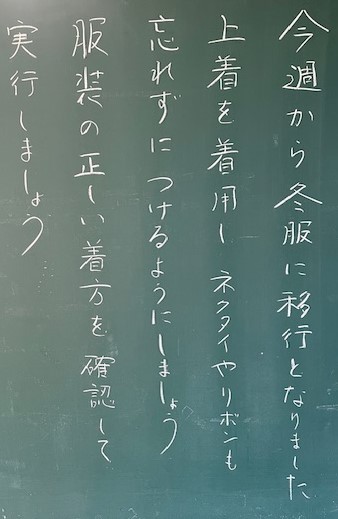 今週から冬服に移行となりました
上着を着用し ネクタイやリボンも
忘れずにつけるようにしましょう
服装の正しい着方を確認して
実行しましょう